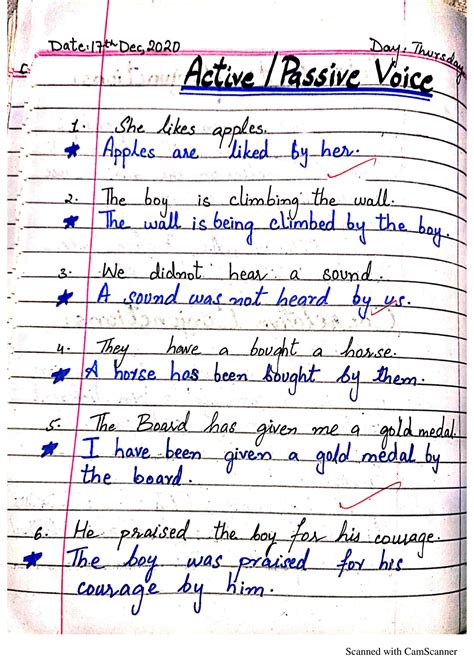 Date: 17th Dec, 2020
Day: Thursday
Active / Passive Voice
1. She likes apples.
★ Apples are liked by her.
2. The boy is climbing the wall.
★ The wall is being climbed by the boy.
3. We didnot hear a sound.
★ A sound was not heard by us.
4. They have a bought a horse.
★ A horse has been bought by them.
5. The Board has given me a gold medal.
★ I have been given a gold medal by
the board.
6. He praised the boy for his courage.
★ The boy was praised for his
courage by him.
Scanned with CamScanner